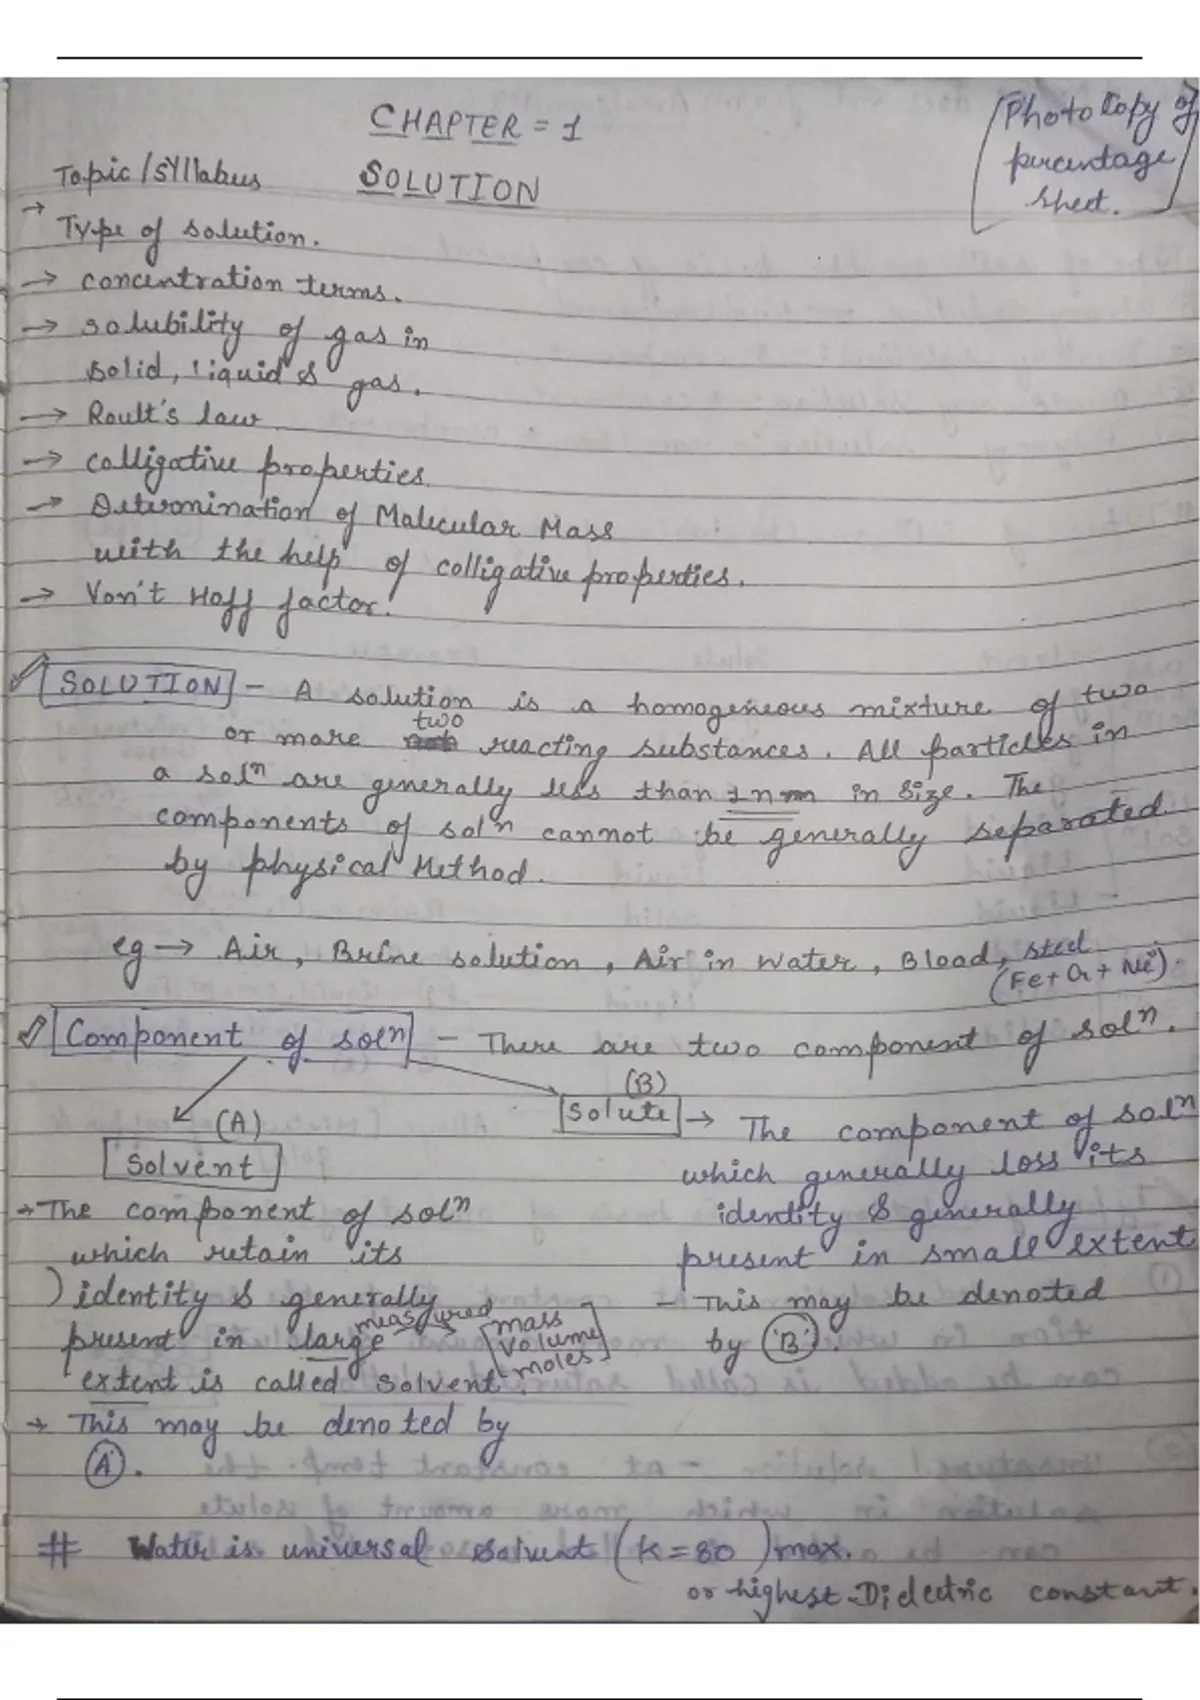 CHAPTER = 1
[Photo Copy of
percentage
sheet.]
Topic/Syllabus
SOLUTION
→ Type of solution.
→ concentration terms.
→ solubility of gas in
solid, liquid & gas.
→ Roult's law
→ colligative properties.
→ Determination of Molecular Mass
with the help of colligative properties.
→ Von't Hoff factor.
SOLUTION - A solution is a homogeneous mixture of two
or more two reacting substances. All particles in
a solⁿ are generally less than 1nm in size. The
components of solⁿ cannot be generally separated
by physical Method.
eg → Air, Brine solution, Air in water, Blood, steel
(Fe+Cr+Ni).
Component of solⁿ - There are two component of solⁿ.
(A)
Solvent
→ The component of solⁿ
which retain its
identity & generally
present in large measured [mass
volume
moles]
extent is called solvent
→ This may be denoted by
(A).
(B)
Solute → The component of solⁿ
which generally loss its
identity & generally
present in small extent
- This may be denoted
by 'B'.
# Water is universal solvent (K=80) max.
or highest Dielectric constant.